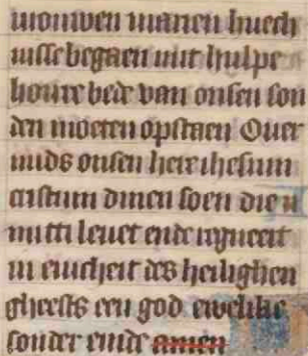 vrouwen marien hoech
nisse begaen mit hulpe
hoirre bede van onsen son
den moeten opstaen Ouer
mids onsen here ihesum
cristum dinen soen die
mitti leuet ende regneert
in eincheit des heilighen
gheests een god ewelike
sonder einde amen